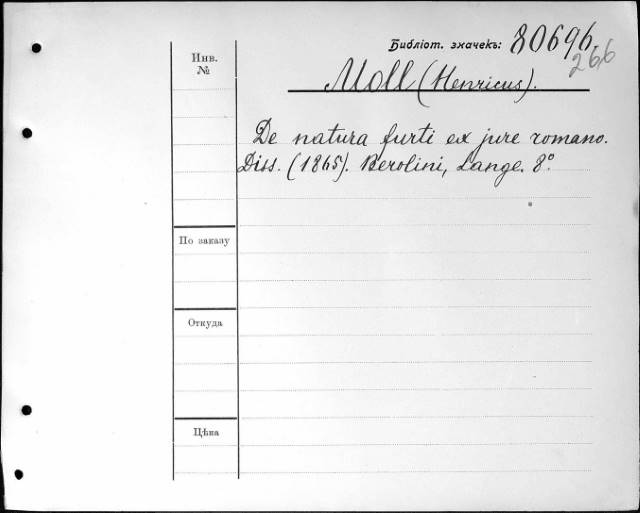 Библіот. значекъ: 80696.
266
Инв.
№
Moll (Henricus).
De natura furti ex jure romano.
Diss. (1865). Berolini, Lange. 8°.
По заказу
Откуда
Цѣна